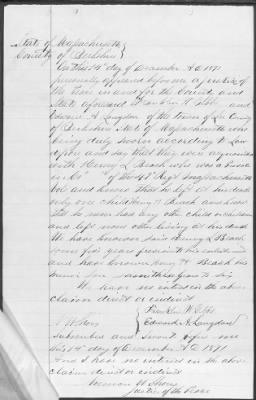 State of Massachusetts
County of Berkshire
On this 14th day of December A D 1871
personally appeared before me a justice of
the Peace in and for the County and
State aforesaid Franklin W. Gibbs and
Edward A. Langdon of the Town of Lee County
of Berkshire State of Massachusetts who
being duly sworn according to Law
depose and say that they were acquainted
with Henry L Beach who was a
in Co " of the 49" Regt Massachusetts
Vols and knows that he left at his death
only one child Henry H Beach and knows
that he never had any other child or children
and left none other living at his death
We have known said Henry L Beach
some five years previous to his enlistment
and have known Henry H Beach his
minor son
We have no interest in the above
claim direct or indirect
Franklin W. Gibbs
Edward A. Langdon
subscribed and sworn before me
this 14th day of December A D 1871
and I have no interest in the above
claim direct or indirect
Justice of the Peace